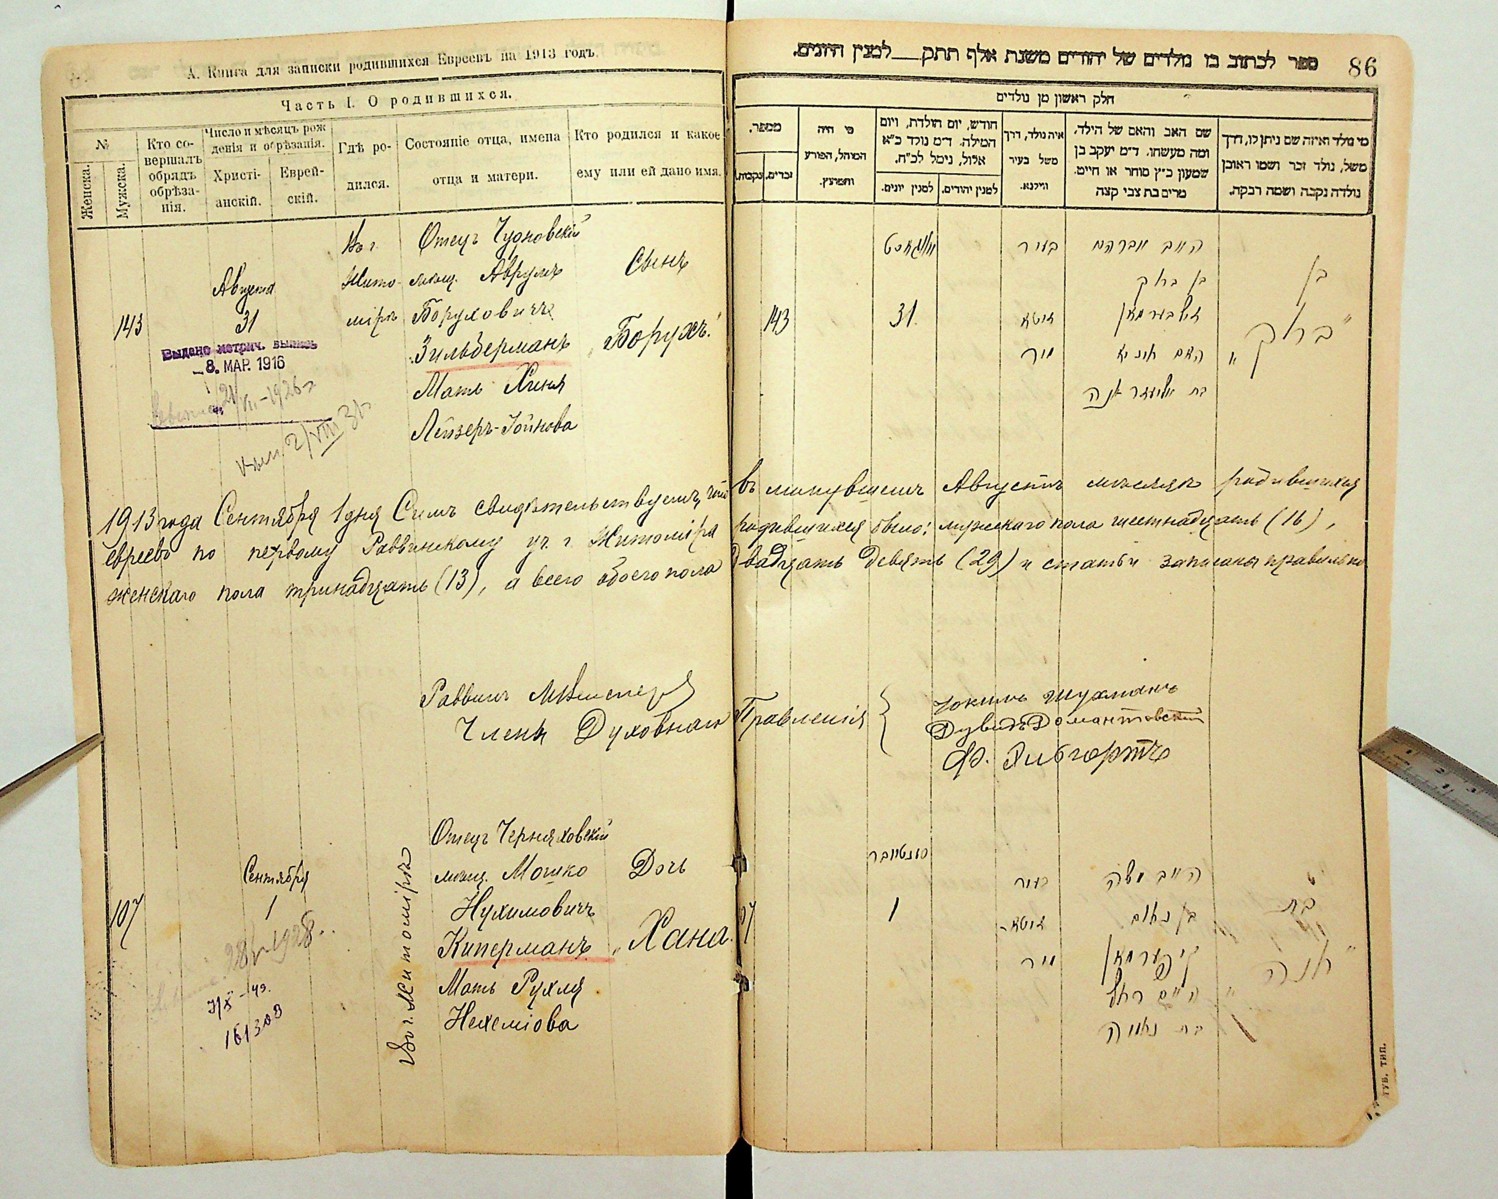 А. Книга для записки родившихся Евреевъ на 1913 годъ.
Часть I. О родившихся.
№
Женска.
Мужска.
Кто со-
вершалъ
обрядъ
обрѣза-
нія.
Число и мѣсяцъ рож
денія и обрѣзанія.
Христі-
анскій.
Еврей-
скій.
Гдѣ ро-
дился.
Состояніе отца, имена
отца и матери.
Кто родился и какое
ему или ей дано имя.
143
Августа
31
Выдано метрич. выпись
8. МАР. 1916
21/VII-1926 г
2/VIII 31 г
Въ г.
Жито-
мірѣ
Отецъ Чудновскій
мѣщ. Аврумъ
Боруховичъ
Зильберманъ
Мать Хиня
Лейзеръ-Іойнова
Сынъ
„Борухъ"
1913 года Сентября 1 дня Симъ свидѣтельствуемъ, что
евреевъ по первому Раввинскому уч. г. Житоміра
женскаго пола тринадцать (13), а всего обоего пола
Раввинъ
Члены Духовнаго
107
Сентября
1
28/V 1928
7/X - 49.
161300
Въ г. Житомірѣ
Отецъ Черняховскій
мѣщ. Мошко
Нухимовичъ
Киперманъ
Мать Рухля
Нехеміова
Дочь
„Хана"
ספר לכתוב בו נולדים של יהודים משנת אלף תתק___למנין היונים.
86
חלק ראשון מן נולדים
מספר,
זכרים,
נקבות,
מי היה
המוהל, הפורע
והמוצץ.
חודש, יום הולדת, ויום
המילה. ד״מ נולד כ״א
אלול, נימל לכ״ח.
למנין יונים.
למנין יהודים.
איה נולד, דרך
משל בעיר
ווילנא.
שם האב והאם של הילד,
ומה מעשהו. ד״מ יעקב בן
שמעון כ״ץ סוחר או חייט.
מרים בת צבי קצה
מי נולד ואיזה שם ניתן לו, דרך
משל, נולד זכר ושמו ראובן
נולדה נקבה ושמה רבקה.
143
אויגוסט
31
בעיר
זיטא
מיר
האב אברהם
בן ברוך
זילבערמאן
בת אליעזר
בן
„ברוך"
въ минувшемъ Августѣ мѣсяцѣ родившихся
родившихся было: мужскаго пола шестнадцать (16),
двадцать девять (29) и статьи записаны правильно
Правленія
Іокимъ Шухманъ
Дувидъ Домантовскій
107
סענטיאבר
1
בעיר
זיטא-
מיר
האב משה
בן נחום
קיפערמאן
האם רחל
בת נחמיה
בת
„חנה"
ГУБ. ТИП.